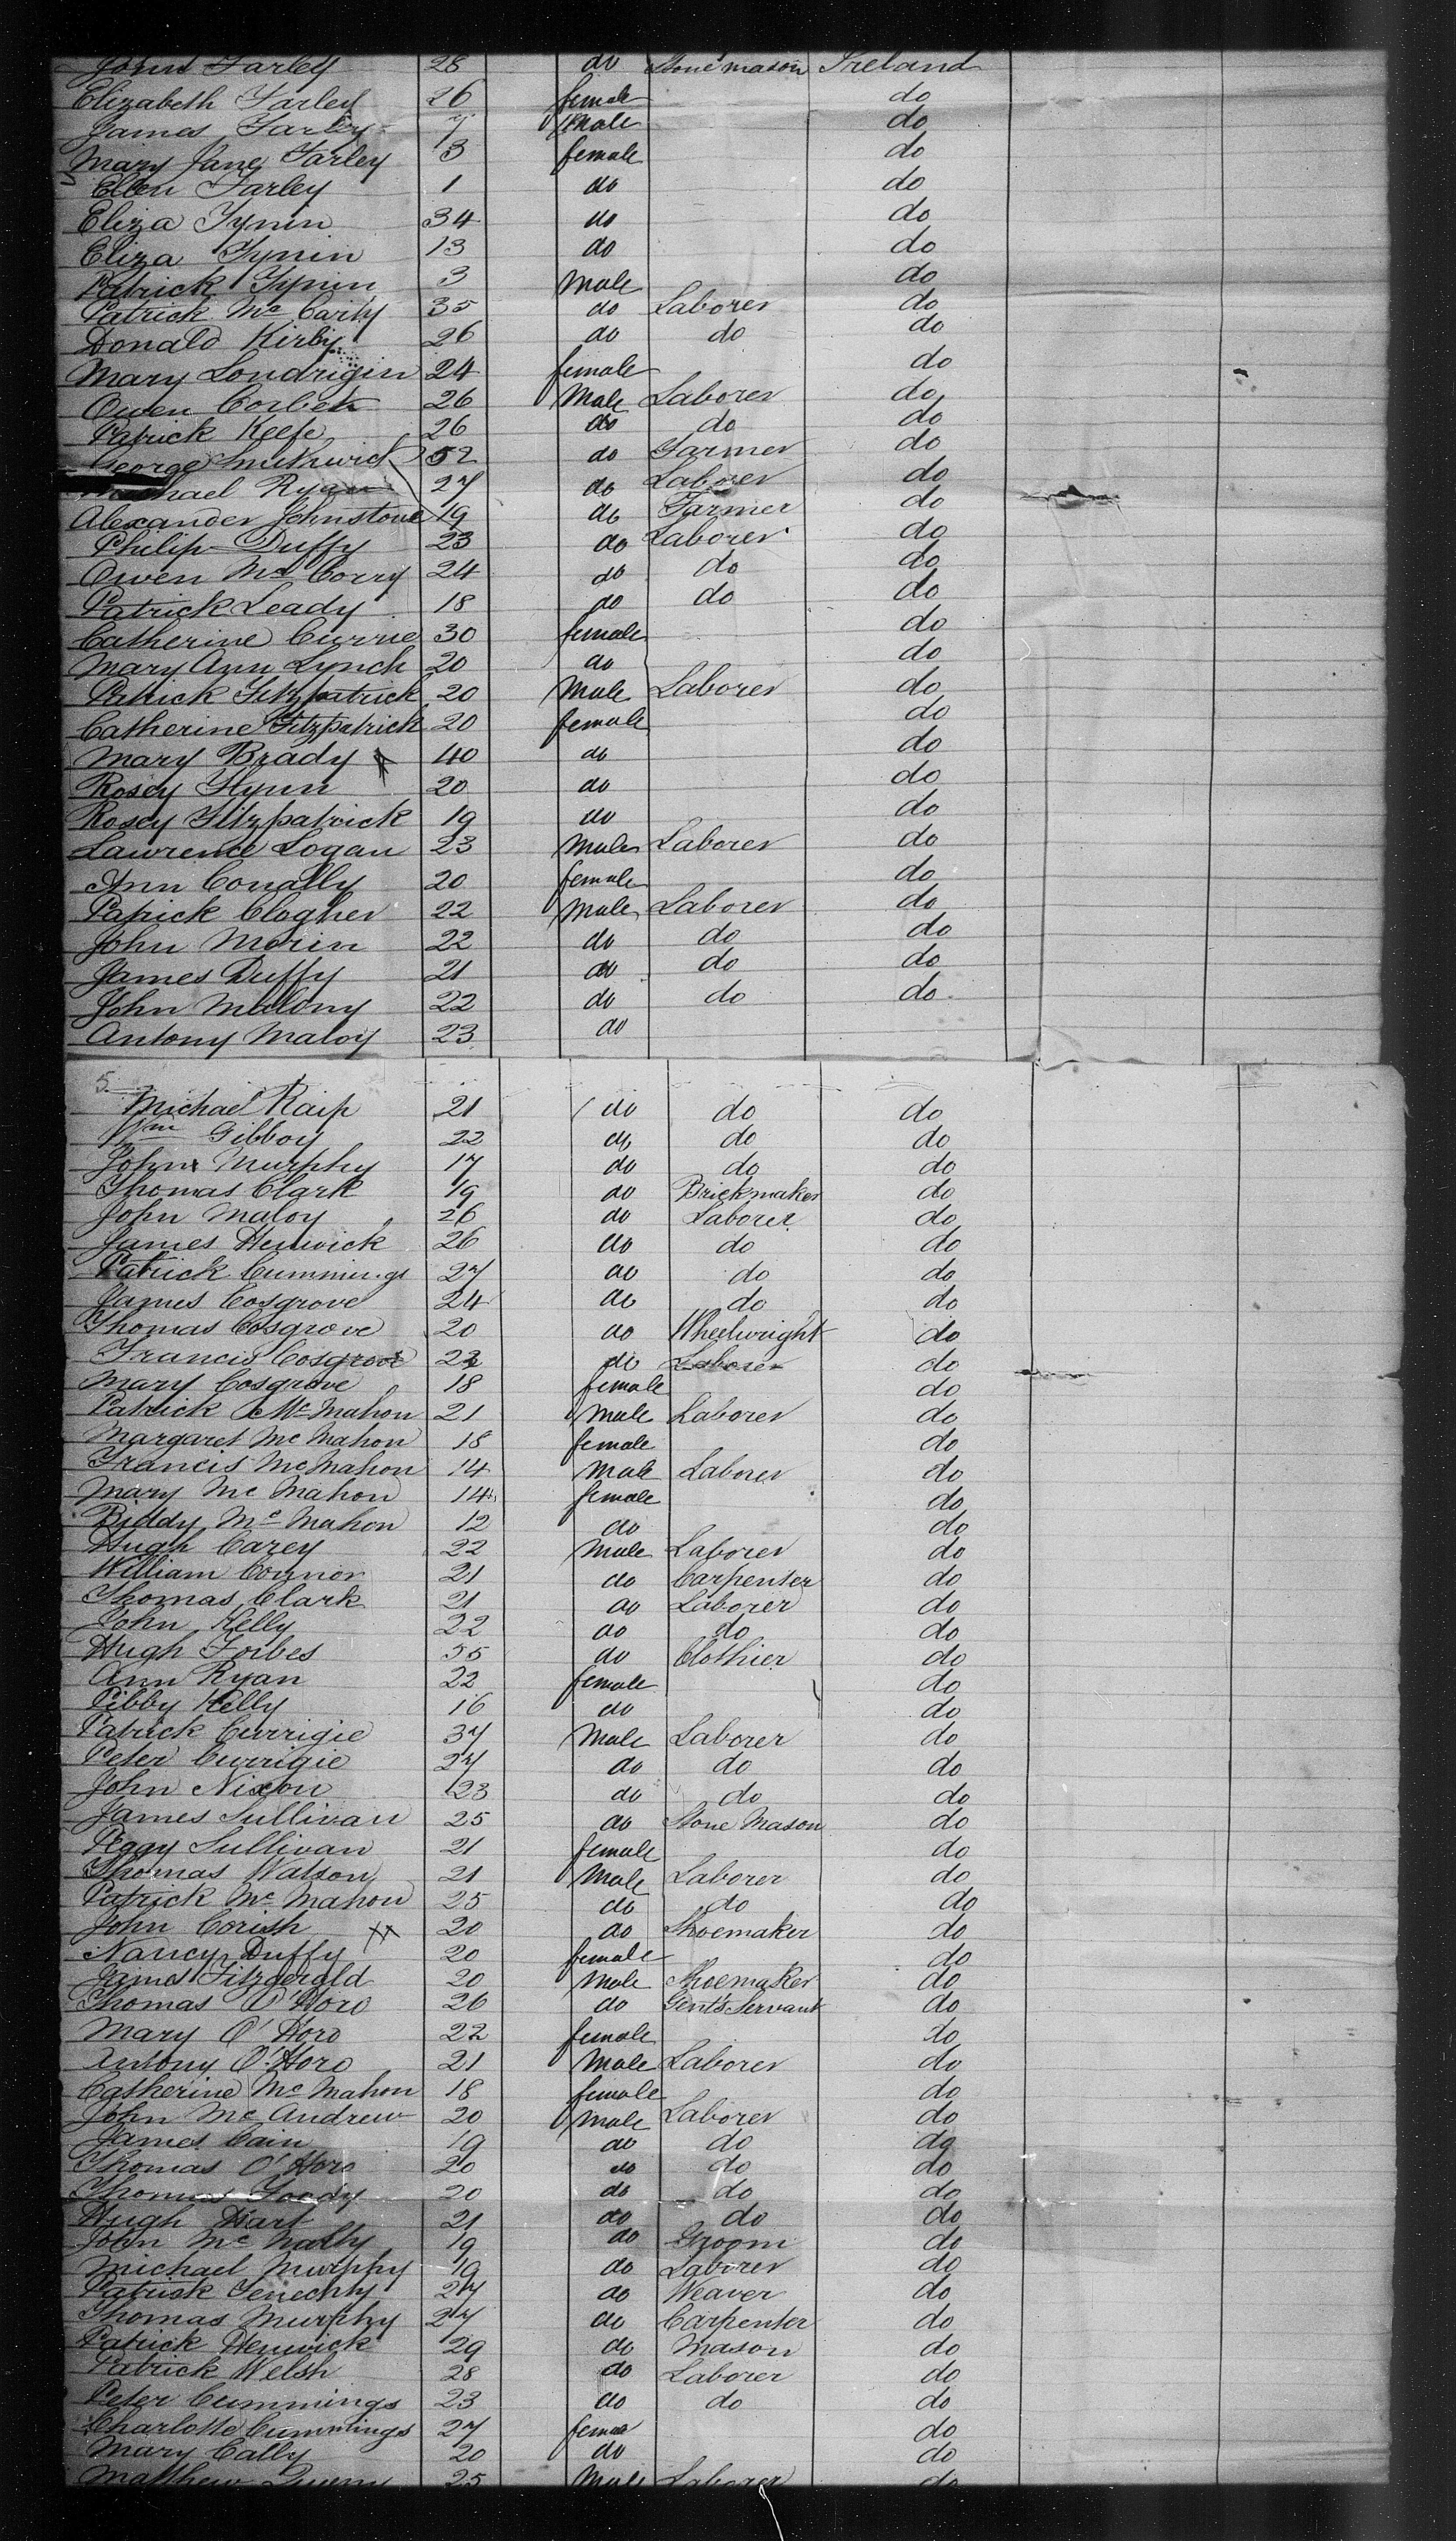 John Farley 28 do Stone mason Ireland
Elizabeth Farley 26 female do
James Farley 7 Male do
Mary Jane Farley 3 female do
Ellen Farley 1 do do
Eliza Tynin 34 do do
Eliza Tynin 13 do do
Patrick Tynin 3 Male do
Patrick Mc Carty 35 do Laborer do
Donald Kirby 26 do do do
Mary Londrigin 24 female do
Owen Corbett 26 Male Laborer do
Patrick Keefe 26 do do do
George Smithwick 52 do Farmer do
Michael Ryan 27 do Laborer do
Alexander Johnstone 19 do Farmer do
Philip Duffy 23 do Laborer do
Owen Mc Corry 24 do do do
Patrick Leady 18 do do do
Catherine Currie 30 female do
Mary Ann Lynch 20 do do
Patrick Fitzpatrick 20 Male Laborer do
Catherine Fitzpatrick 20 female do
Mary Brady 40 do do
Rosey Flynn 20 do do
Rosey Fitzpatrick 19 do do
Lawrence Logan 23 Male Laborer do
Ann Conally 20 female do
Patrick Clogher 22 Male Laborer do
John Morin 22 do do do
James Duffy 21 do do do
John Malony 22 do do do
Antony Maloy 23 do
5
Michael Raip 21 do do do
Wm Gibboy 22 do do do
John Murphy 17 do do do
Thomas Clark 19 do Brickmaker do
John Maloy 26 do Laborer do
James Henwick 26 do do do
Patrick Cummings 27 do do do
James Cosgrove 24 do do do
Thomas Cosgrove 20 do Wheelwright do
Francis Cosgrove 22 do Laborer do
Mary Cosgrove 18 female do
Patrick Mc Mahon 21 Male Laborer do
Margaret Mc Mahon 18 female do
Francis Mc Mahon 14 Male Laborer do
Mary Mc Mahon 14 female do
Biddy Mc Mahon 12 do do
Hugh Carey 22 Male Laborer do
William Connor 21 do Carpenter do
Thomas Clark 21 do Laborer do
John Kelly 22 do do do
Hugh Forbes 55 do Clothier do
Ann Ryan 22 female do
Libby Kelly 16 do do
Patrick Currigie 37 Male Laborer do
Peter Currigie 27 do do do
John Nixon 23 do do do
James Sullivan 25 do Stone Mason do
Peggy Sullivan 21 female do
Thomas Watson 21 Male Laborer do
Patrick Mc Mahon 25 do do do
John Corish 20 do Shoemaker do
Nancy Duffy 20 female do
James Fitzgerald 20 Male Shoemaker do
Thomas O'Horo 26 do Gents Servant do
Mary O'Horo 22 female do
Antony O'Horo 21 Male Laborer do
Catherine Mc Mahon 18 female do
John Mc Andrew 20 Male Laborer do
James Cain 19 do do do
Thomas O'Horo 20 do do do
Thomas Foody 20 do do do
Hugh Hart 21 do do do
John Mc Nally 19 do Groom do
Michael Murphy 19 do Laborer do
Patrick 27 do Weaver do
Thomas Murphy 27 do Carpenter do
Patrick Henwick 29 do Mason do
Patrick Welsh 28 do Laborer do
Peter Cummings 23 do do do
Charlotte Cummings 27 femae do
Mary Cally 20 do do
Matthew 25 Male Laborer do